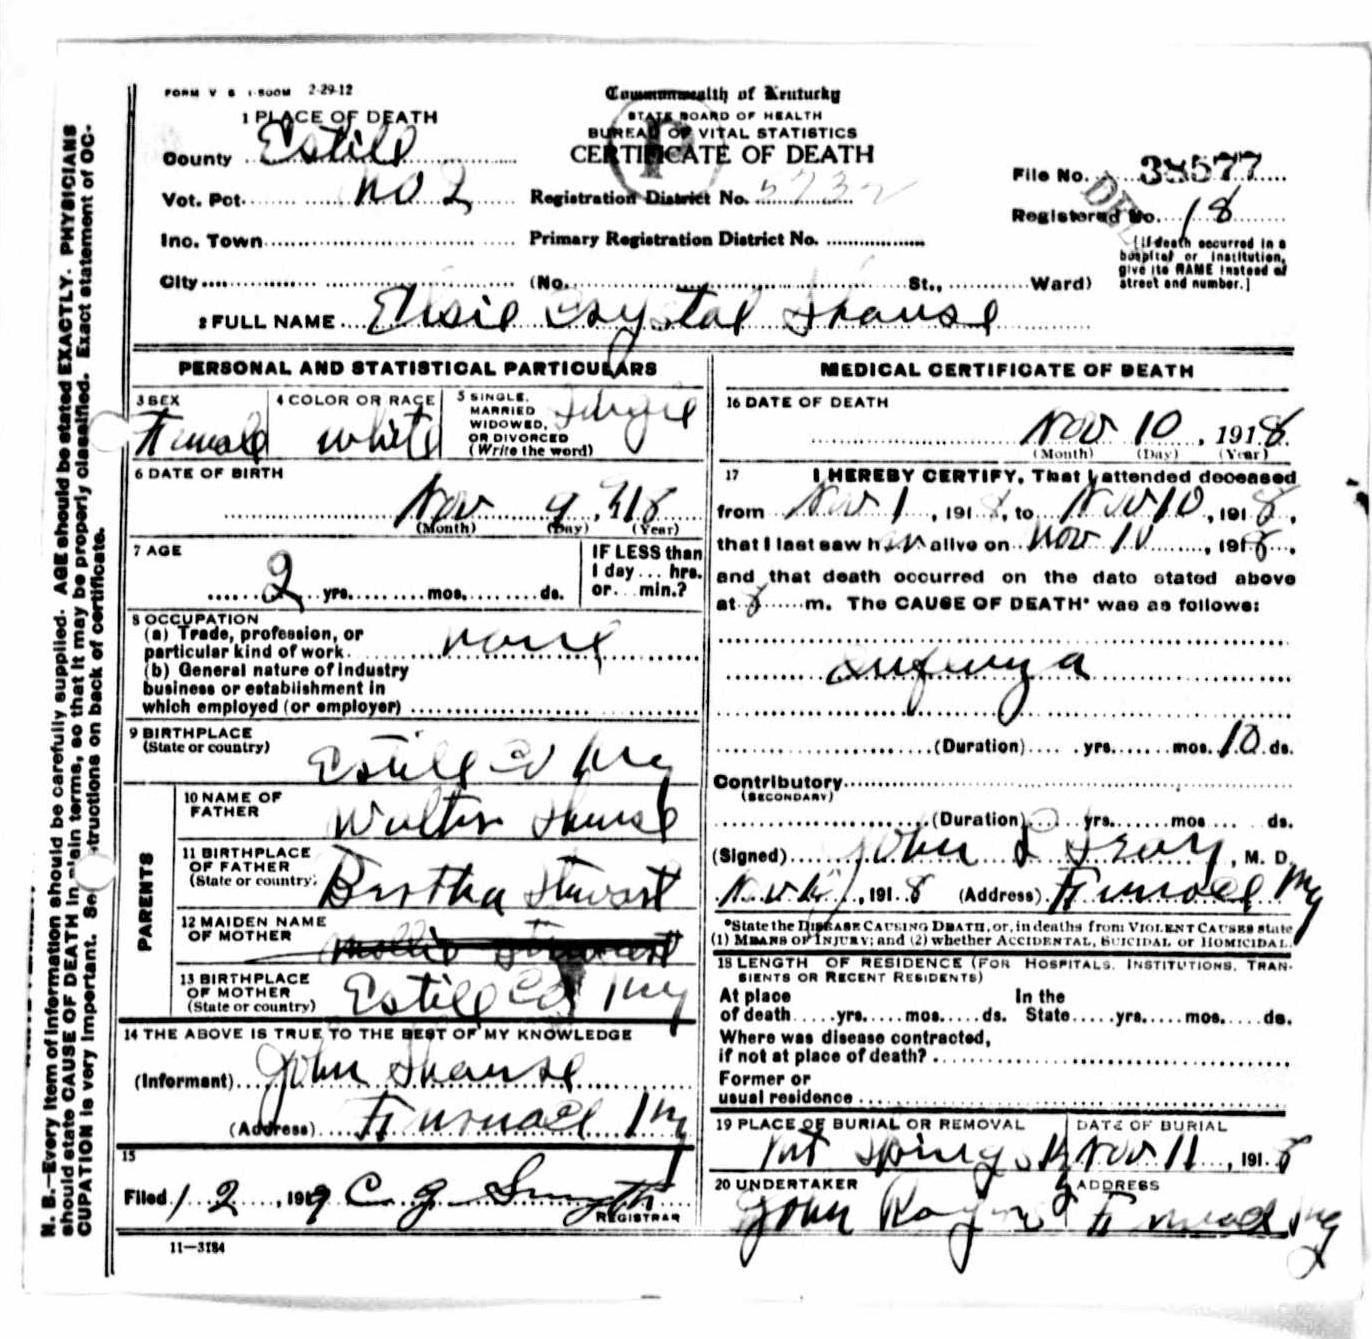 FORM V S 1-500M 2-29-12
Commonwealth of Kentucky
STATE BOARD OF HEALTH
BUREAU OF VITAL STATISTICS
CERTIFICATE OF DEATH
P
1 PLACE OF DEATH
County Estill
Vot. Pct. No 2
Inc. Town
City
Registration District No. 5732
Primary Registration District No.
(No. St., Ward)
File No. 38577
DEL
Registered No. 18
[If death occurred in a
hospital or institution,
give its NAME instead of
street and number.]
2 FULL NAME Elsie Crystal
PERSONAL AND STATISTICAL PARTICULARS
3 SEX
Female
4 COLOR OR RACE
white
5 SINGLE,
MARRIED
WIDOWED,
OR DIVORCED
(Write the word)
Single
6 DATE OF BIRTH
Nov 9, 918
(Month) (Day) (Year)
7 AGE
2 yrs. mos. ds.
IF LESS than
1 day ... hrs.
or ... min.?
8 OCCUPATION
(a) Trade, profession, or
particular kind of work none
(b) General nature of industry
business or establishment in
which employed (or employer)
9 BIRTHPLACE
(State or country)
Estill Co Ky
PARENTS
10 NAME OF
FATHER
Walter
11 BIRTHPLACE
OF FATHER
(State or country)
Bertha Stewart
12 MAIDEN NAME
OF MOTHER
Mollie Stewart
13 BIRTHPLACE
OF MOTHER
(State or country)
Estill Co Ky
14 THE ABOVE IS TRUE TO THE BEST OF MY KNOWLEDGE
(Informant) John
(Address) Furnace Ky
15
Filed 1 2, 1919 C. G. Smyth
REGISTRAR
11—3184
MEDICAL CERTIFICATE OF DEATH
16 DATE OF DEATH
Nov 10, 1918
(Month) (Day) (Year)
17 I HEREBY CERTIFY, That I attended deceased
from Nov 1, 1918, to Nov 10, 1918,
that I last saw her alive on Nov 10, 1918,
and that death occurred on the date stated above
at 8 m. The CAUSE OF DEATH* was as follows:
Influenza
(Duration) yrs. mos. 10 ds.
Contributory
(SECONDARY)
(Duration) yrs. mos ds.
(Signed) John, M. D.
, 1918 (Address) Furnace Ky
*State the DISEASE CAUSING DEATH, or, in deaths from VIOLENT CAUSES state
(1) MEANS OF INJURY; and (2) whether ACCIDENTAL, SUICIDAL or HOMICIDAL.
18 LENGTH OF RESIDENCE (FOR HOSPITALS, INSTITUTIONS, TRAN-
SIENTS OR RECENT RESIDENTS)
At place In the
of death yrs. mos. ds. State yrs. mos. ds.
Where was disease contracted,
if not at place of death?
Former or
usual residence
19 PLACE OF BURIAL OR REMOVAL
Springs Ky
DATE OF BURIAL
Nov 11, 1918
20 UNDERTAKER
John
ADDRESS
Furnace Ky
N. B.—Every item of information should be carefully supplied. AGE should be stated EXACTLY. PHYSICIANS
should state CAUSE OF DEATH in plain terms, so that it may be properly classified. Exact statement of OC-
CUPATION is very important. See instructions on back of certificate.